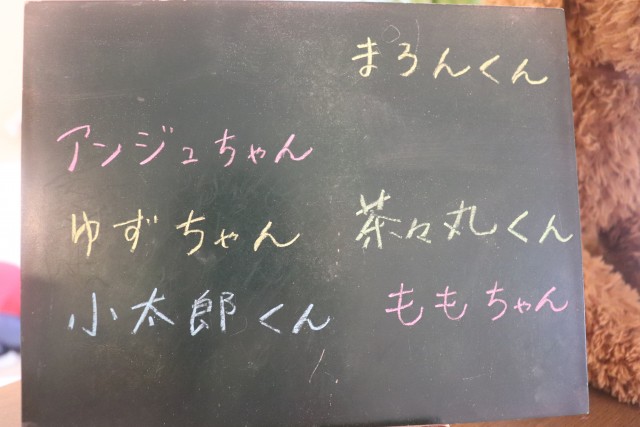 まろんくん
アンジュちゃん
ゆずちゃん
茶々丸くん
小太郎くん
ももちゃん